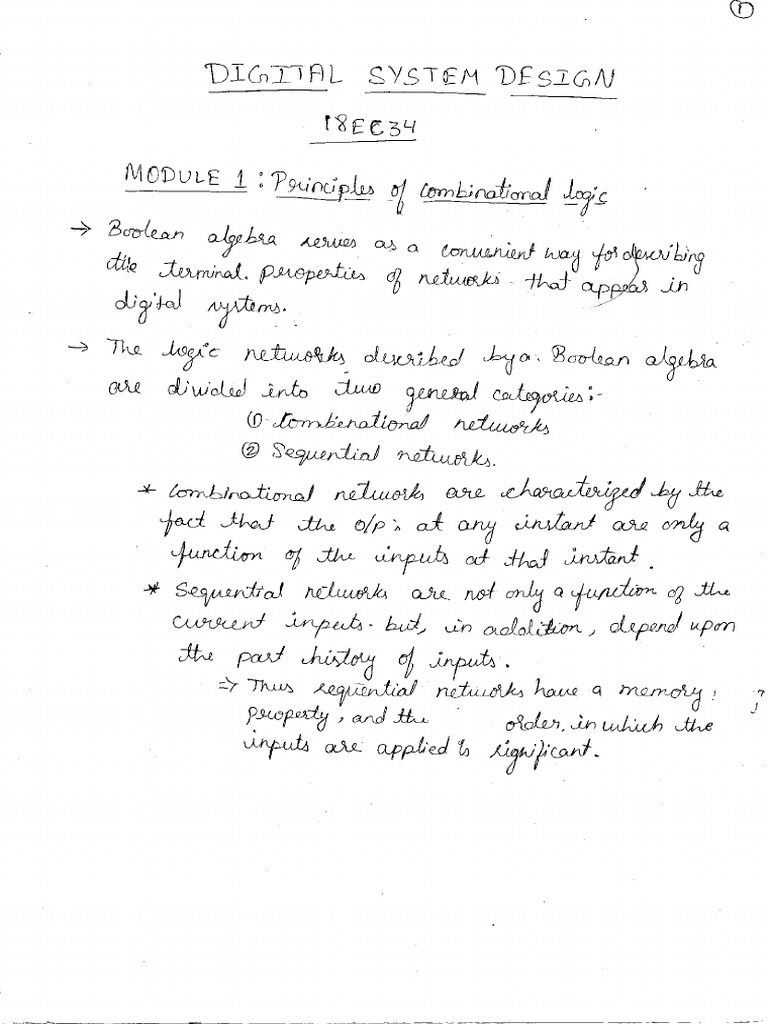 1
DIGITAL SYSTEM DESIGN
18EC34
MODULE 1 : Principles of Combinational logic
→ Boolean algebra serves as a convenient way for describing
the terminal properties of networks that appear in
digital systems.
→ The logic networks described by a Boolean algebra
are divided into two general categories:-
① Combenational networks
② Sequential networks.
* Combinational networks are characterized by the
fact that the o/p's at any instant are only a
function of the inputs at that instant.
* Sequential networks are not only a function of the
current inputs but, in addition, depend upon
the past history of inputs.
⇒ Thus sequential networks have a memory
property, and the order in which the
inputs are applied is significant.